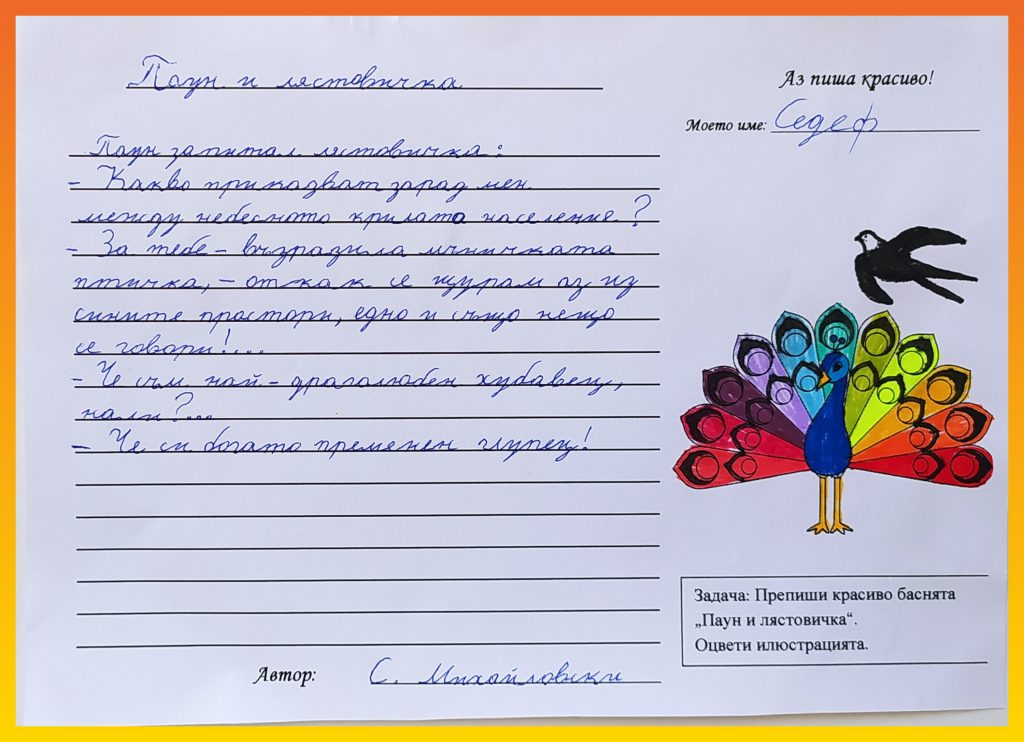 Паун и лястовичка
Аз пиша красиво!
Моето име: Седеф
Паун запитал лястовичка:
- Какво приказват зарад мен
между небесното крилато население?
- За тебе - възразила мъничката
птичка, - откак се щурам аз из
сините простори, едно и също нещо
се говори!...
- Че съм най-драголюбен хубавец,
нали?...
- Че си богато пременен глупец!
Задача: Препиши красиво баснята
„Паун и лястовичка“.
Оцвети илюстрацията.
Автор: С. Михайловски